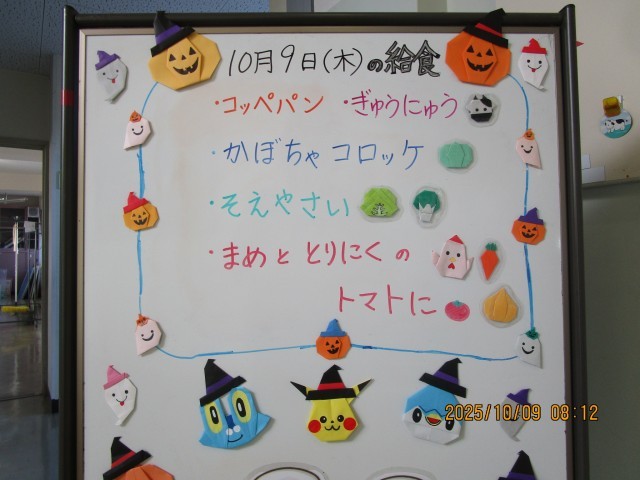 10月9日(木)の給食
・コッペパン ・ぎゅうにゅう
・かぼちゃコロッケ
・そえやさい
・まめと とりにくの
トマトに
2025/10/09 08:12